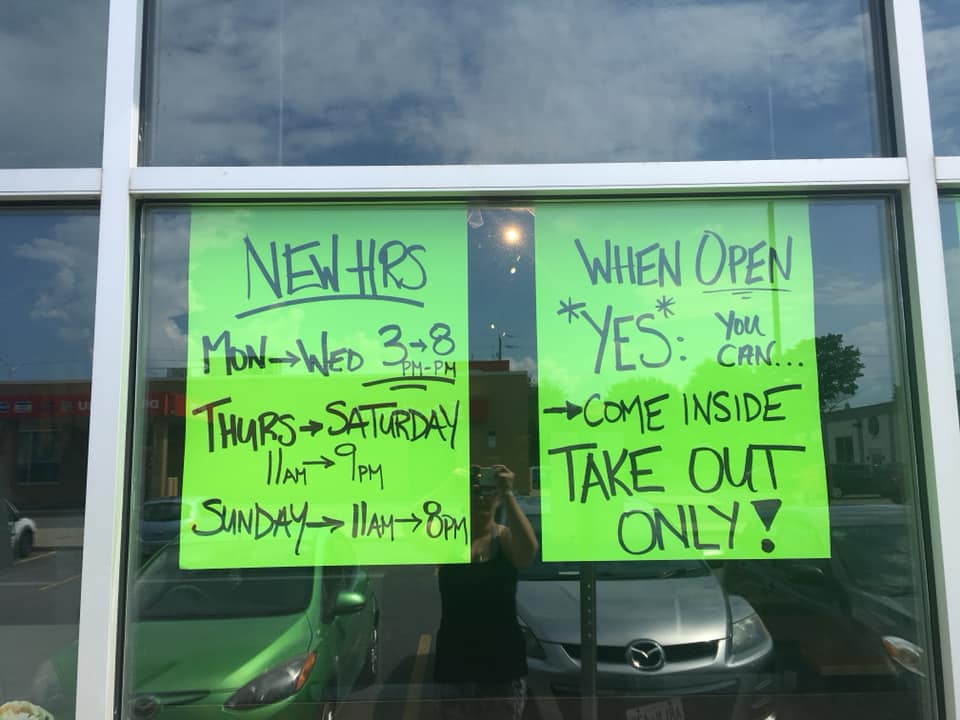 NEW HRS
MON→WED 3→8
PM-PM
THURS→SATURDAY
11AM→9PM
SUNDAY→11AM→8PM
WHEN OPEN
*YES*: YOU
CAN...
→COME INSIDE
TAKE OUT
ONLY!